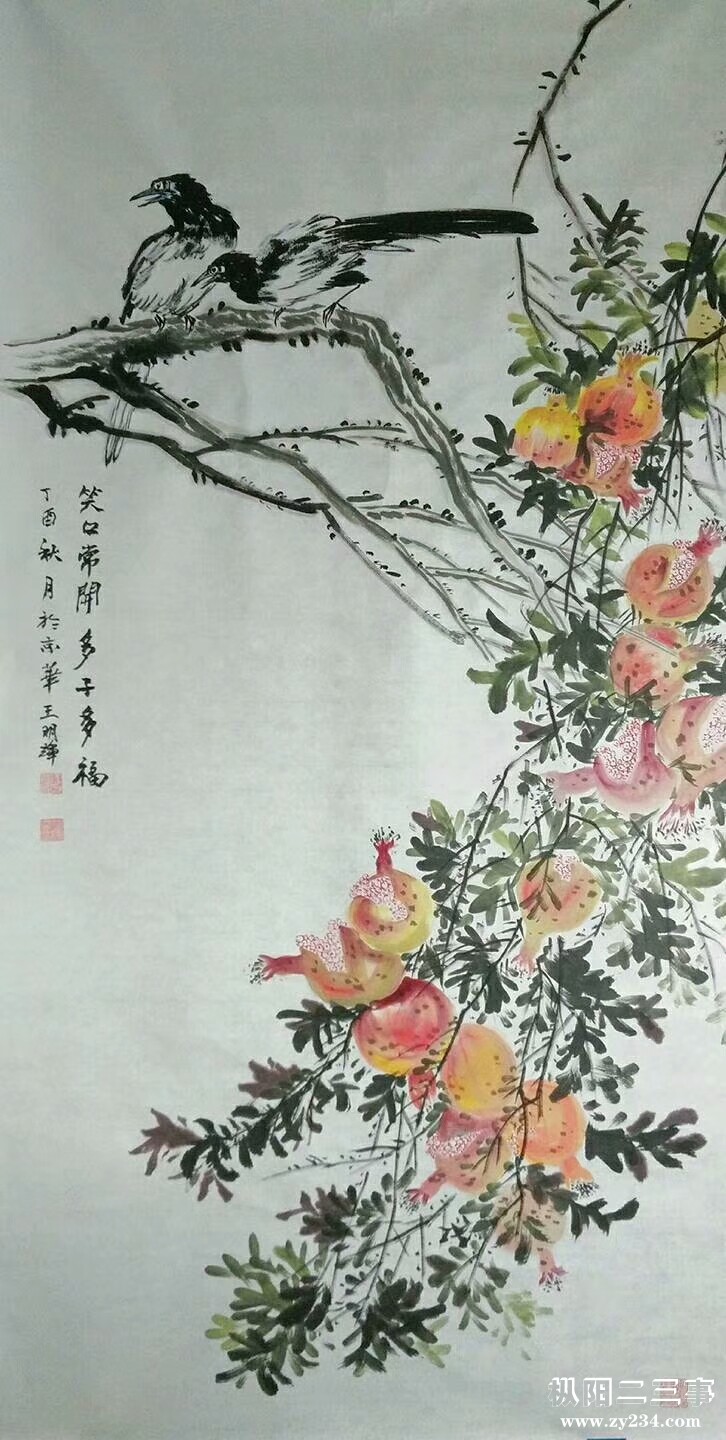 笑口常開多子多福
丁酉秋月於京華王明輝
枞阳二三事
www.zy234.com